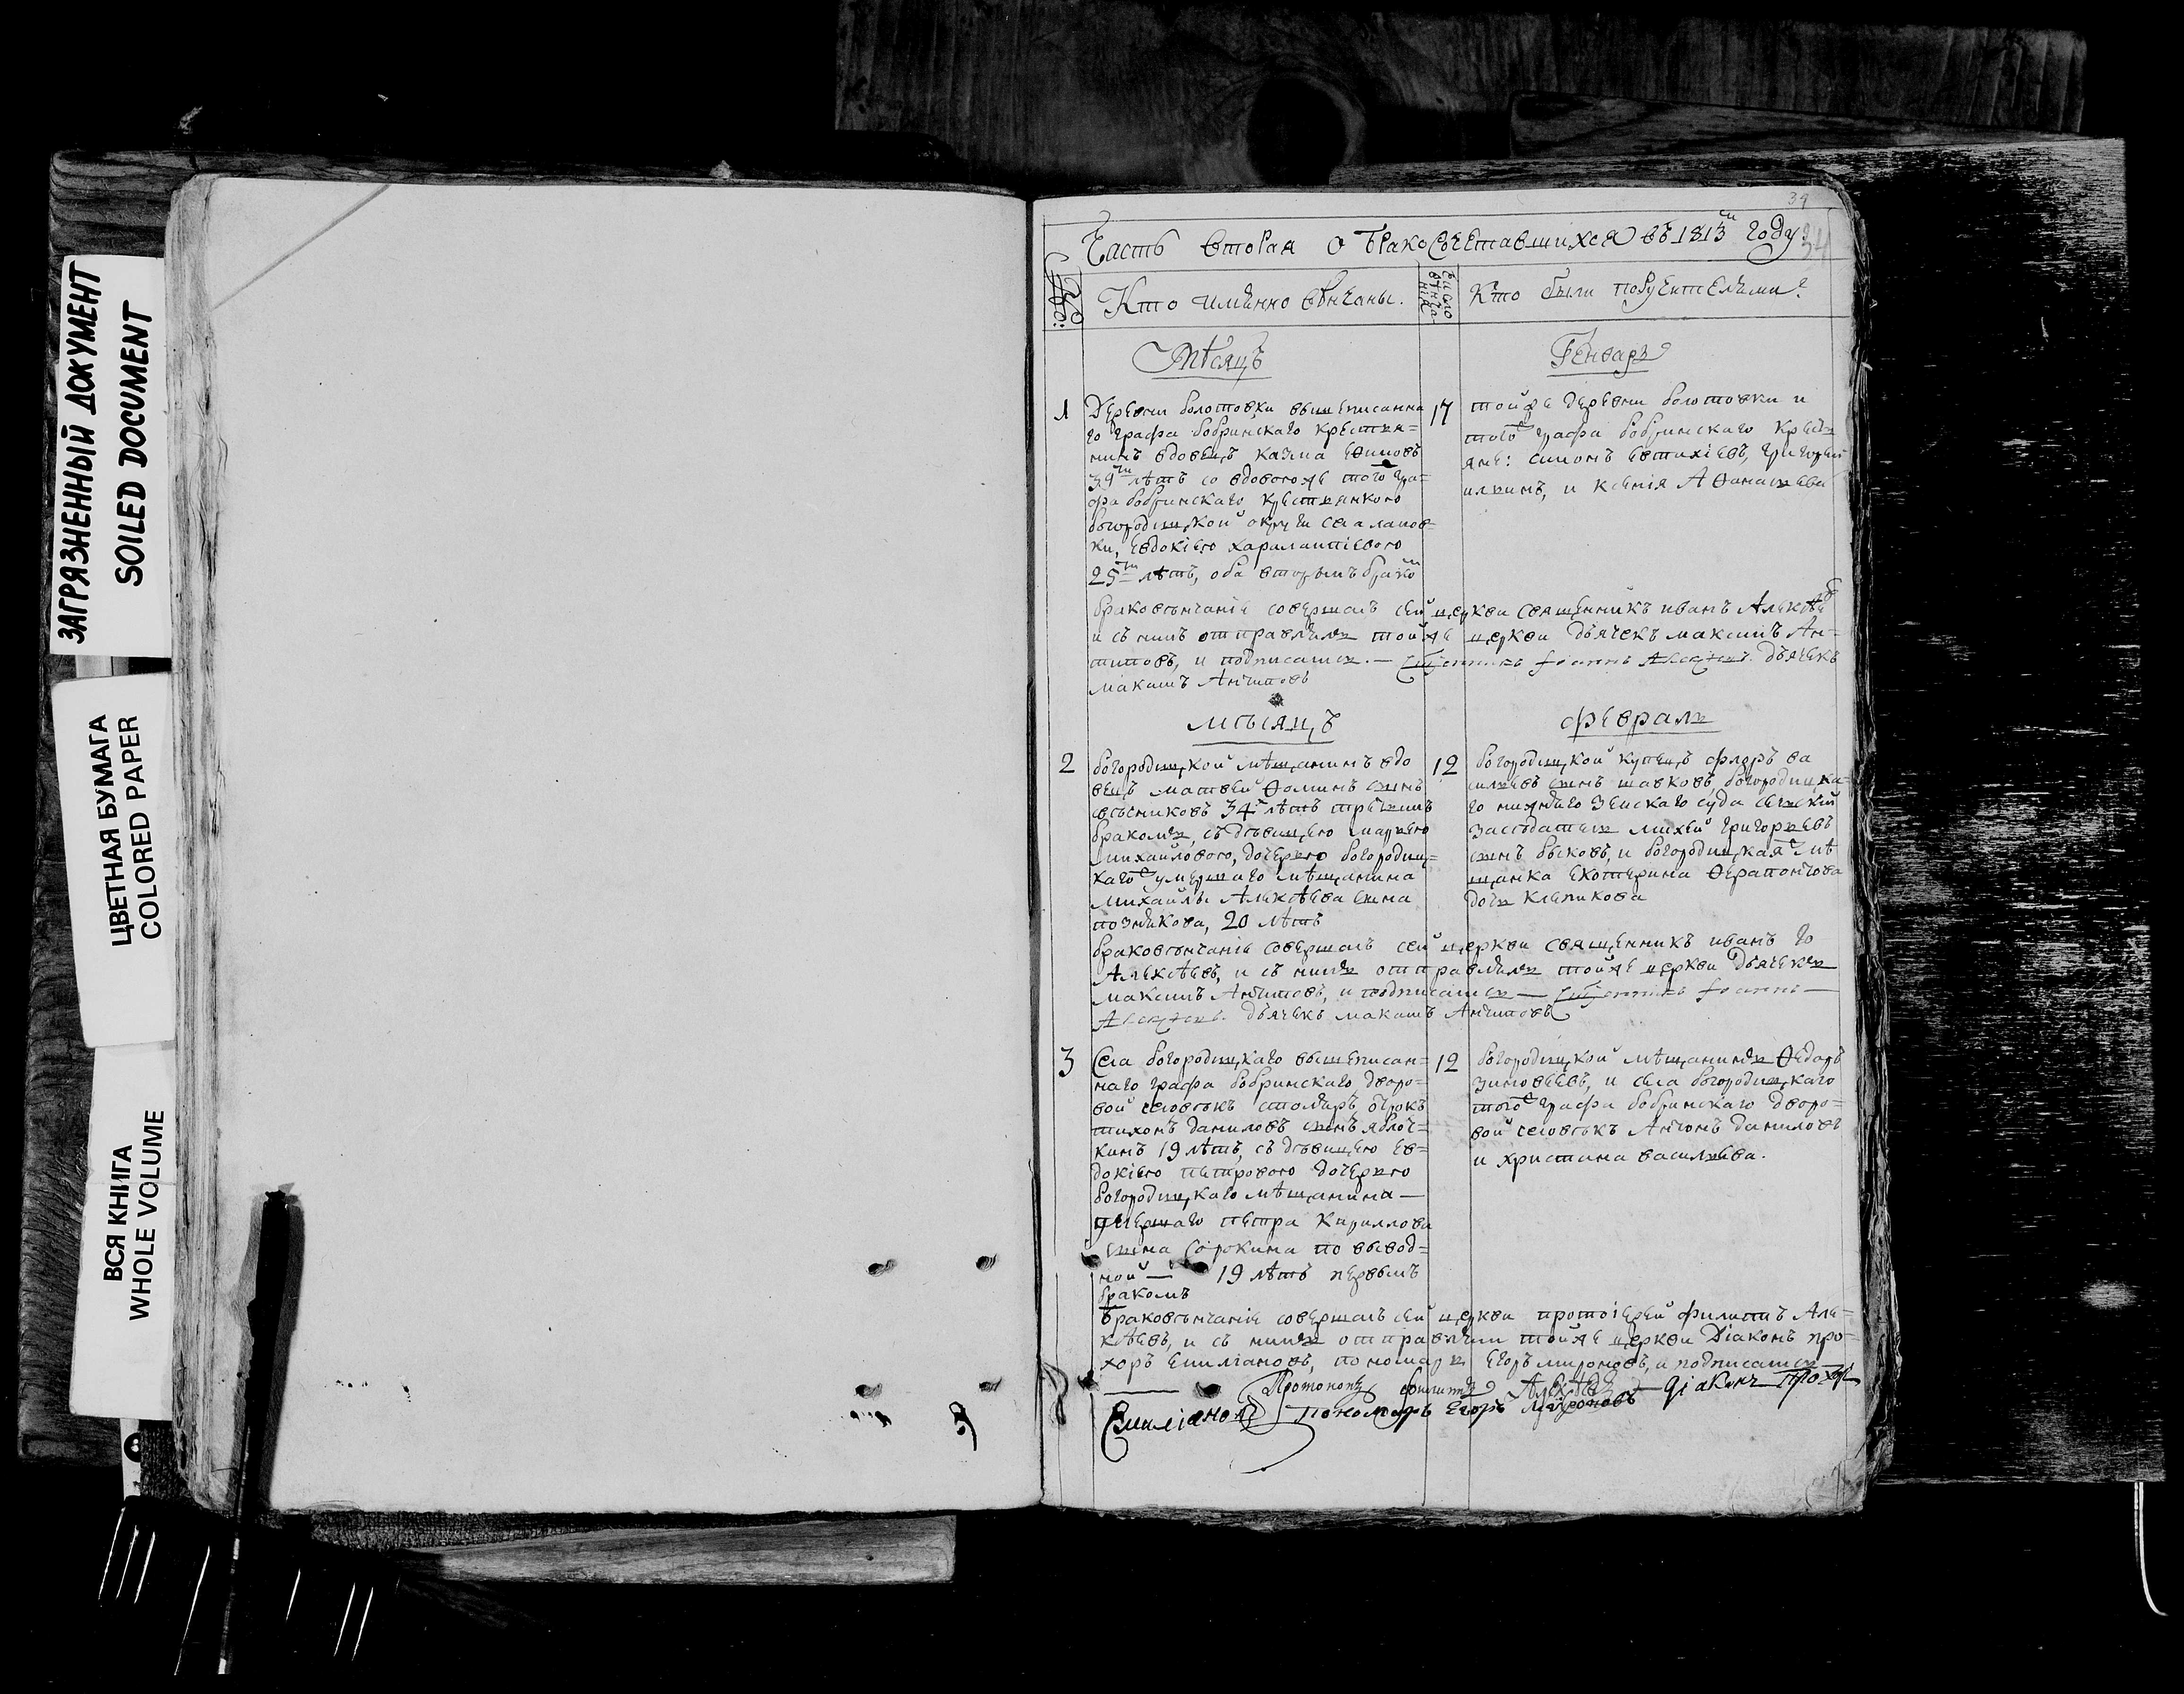 ЗАГРЯЗНЕННЫЙ ДОКУМЕНТ
SOILED DOCUMENT
ЦВЕТНАЯ БУМАГА
COLORED PAPER
ВСЯ КНИГА
WHOLE VOLUME
34
Часть вторая о бракосочетавшихся въ 1813м году.
34
Кто имянно венчаны.
число венчания
Кто были поручителями?
Мѣсяцъ
Генварь
1
Деревни болотовки вышеписанна
го графа бобринскаго крестья=
нинъ вдовецъ казма ефимовъ
39ти лѣтъ со вдовою же того гра=
фа бобринскаго крестьянкою
богородицкой округи села
ки, евдокіею харалампіевою
25ти лѣтъ, оба вторымъ бракомъ
17
тойже деревни болотовки и
того графа бобринскаго крестья
яне: симонъ евтихіевъ, григорий
илинъ, и ксенія Афанасьева
браковѣнчаніе совершалъ сей церкви священникъ иванъ Алексѣевъ
и съ нимъ отправляли тойже церкви дьячекъ максимъ Ан=
типовъ, и подписались. — Священникъ Іоаннъ Алексѣевъ. дьячекъ
максимъ Антиповъ
мѣсяцъ
февраль
2
богородицкой мѣщанинъ вдо
вецъ матвей Фоминъ сынъ
овсѣниковъ 34 лѣтъ третьимъ
бракомъ, съ дѣвицею марьею
михайловою, дочерью богородиц=
каго умершаго мѣщанина
михайлы Алексѣева сына
познякова, 20 лѣтъ
12
богородицкой купецъ флоръ ва
сильевъ сынъ шавковъ, богородицка=
го нижняго земскаго суда сельскій
засѣдатель михей григорьевъ
сынъ быковъ, и богородицкая мѣ
щанка екотерина Ферапонтова
дочь клепикова
браковѣнчаніе совершалъ сей церкви священникъ иванъ
Алексѣевъ, и съ нимъ отправляли тойже церкви дьячекъ
максимъ Антиповъ, и подписались — Священникъ Іоаннъ —
Алексѣевъ. дьячекъ максимъ Антиповъ
3
села богородицкаго вышеписан=
наго графа бобринскаго дворо=
вой человѣкъ столяръ отрокъ
тихонъ даниловъ сынъ яблоч=
кинъ 19 лѣтъ, съ дѣвицею ев=
докіею петровою дочерью
богородицкаго мѣщанина —
умершаго петра кириллова
сына сорокина по вывод=
ной — 19 лѣтъ первымъ
бракомъ
12
богородицкой мѣщанинъ Федоръ
зиновьевъ, и села богородицкаго
того графа бобринскаго дворо=
вой человѣкъ Антонъ даниловъ
и христина васильева.
браковѣнчаніе совершалъ сей церкви протоіерей филиппъ Але=
ксѣевъ, и съ нимъ отправляли тойже церкви діаконъ про=
хоръ емиліановъ, пономарь егоръ мироновъ, и подписались
Протопопъ филиппъ Алексѣевъ діаконъ Прохоръ
Емиліановъ пономарь Егоръ Мироновъ